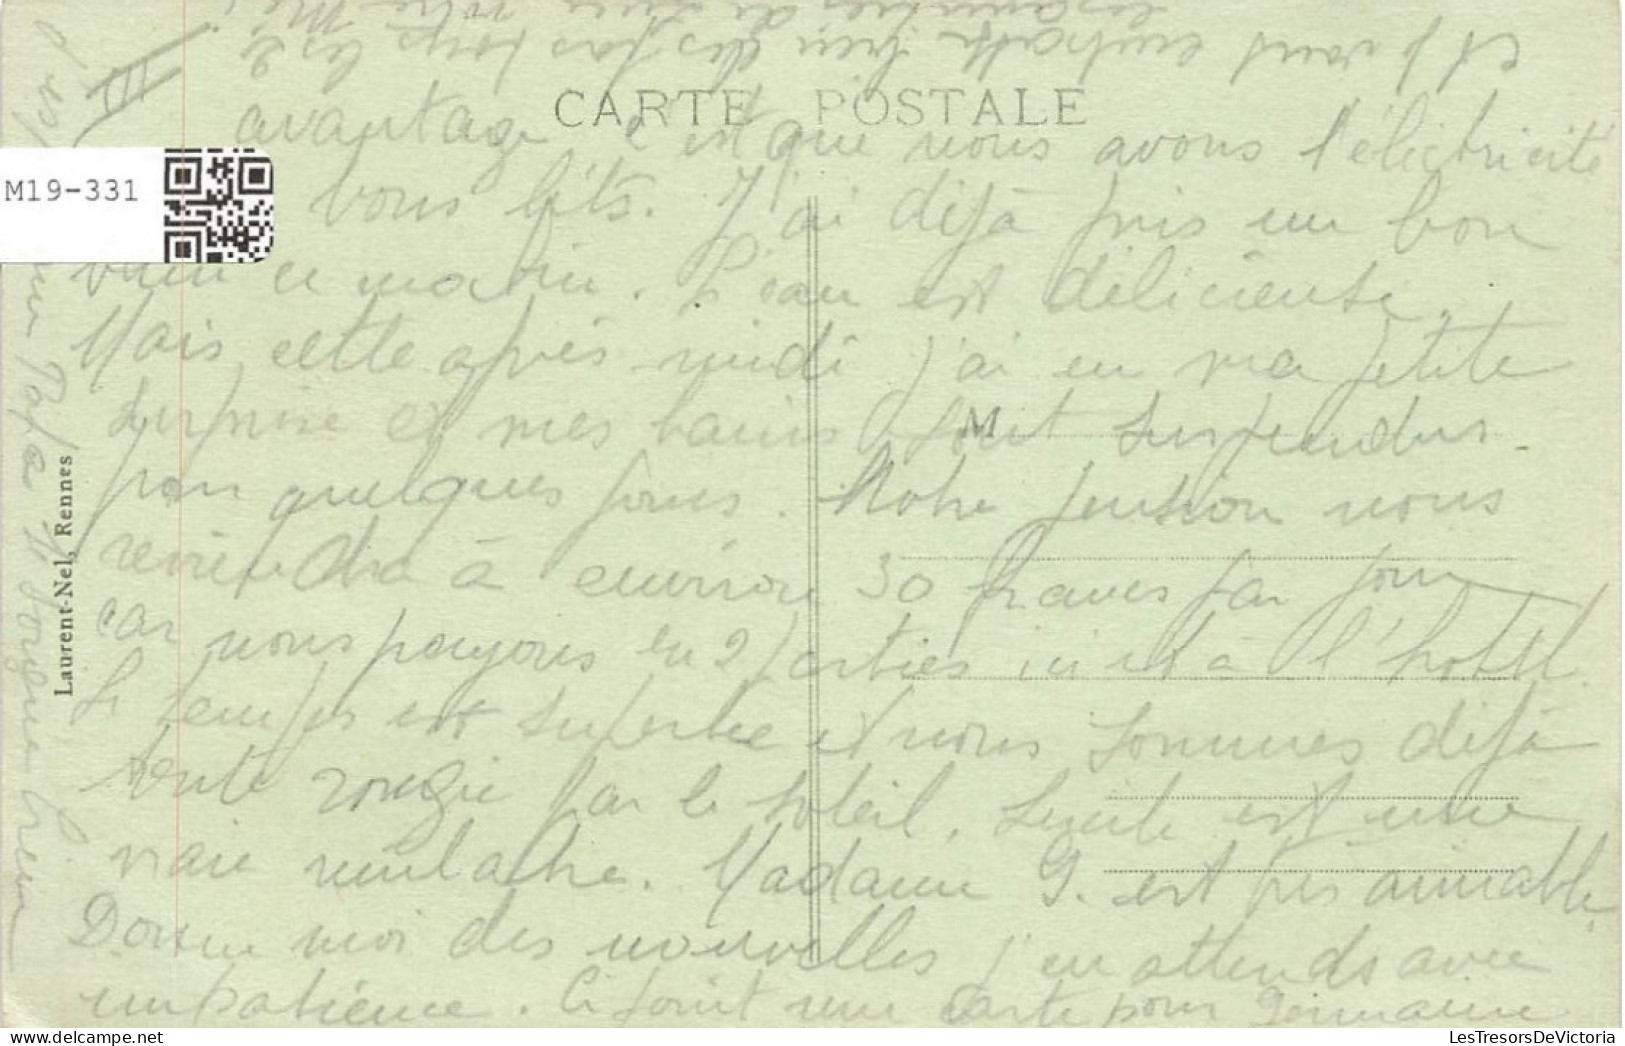 III
CARTE POSTALE
avantage c'est que nous avons l'électricité
bons lits. J'ai déjà pris un bon
bain ce matin. L'eau est délicieuse.
Mais cette après midi j'ai eu ma petite
surprise et mes bains sont suspendus
M
pour quelques jours. Notre pension nous
reviendra à environ 30 francs par jour
car nous payons en 2 parties ici et à l'hôtel.
Le temps est superbe et nous sommes déjà
toute rougie par le soleil. Lucile est une
vraie mulatre. Madame G. est très aimable
Donne moi des nouvelles j'en attends avec
impatience. Ci joint une carte pour Germaine
et
Papa
Laurent-Nel, Rennes
M19-331
LesTresorsDeVictoria